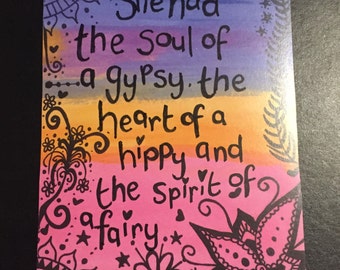 She had
the soul of
a gypsy, the
heart of a
hippy and
the spirit of
a fairy